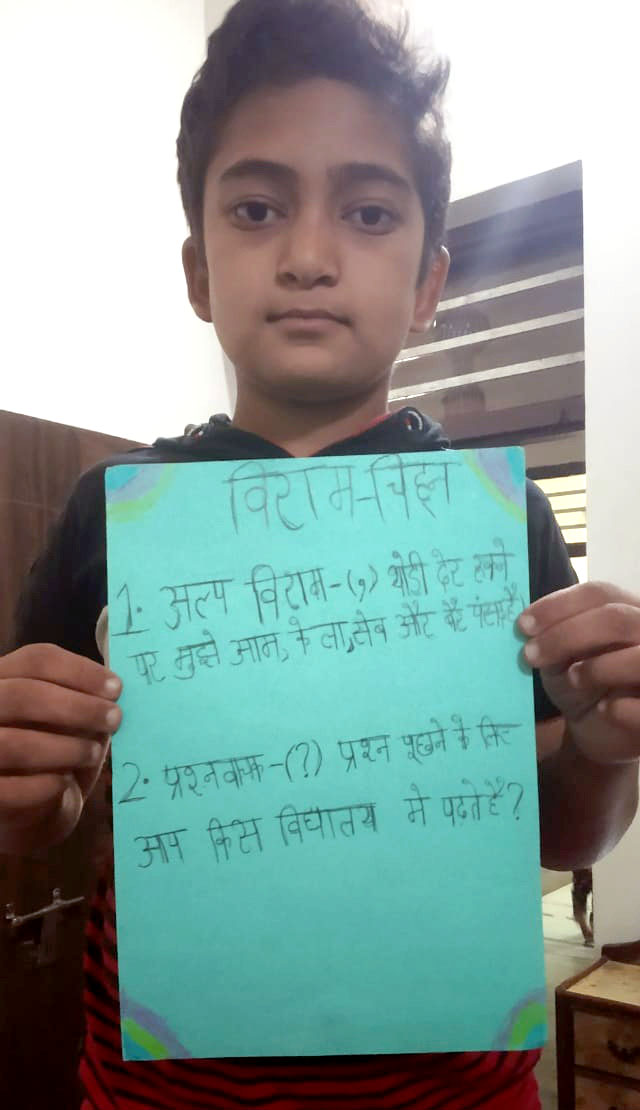 विराम-चिह्न
1. अल्प विराम-(,) थोडी देर रुकने
पर मुझे आम, केला,सेब और बेर पंसद हैं
2. प्रश्नवाचक-(?) प्रश्न पूछने के लिए
आप किस विद्यालय मे पढते हैं?